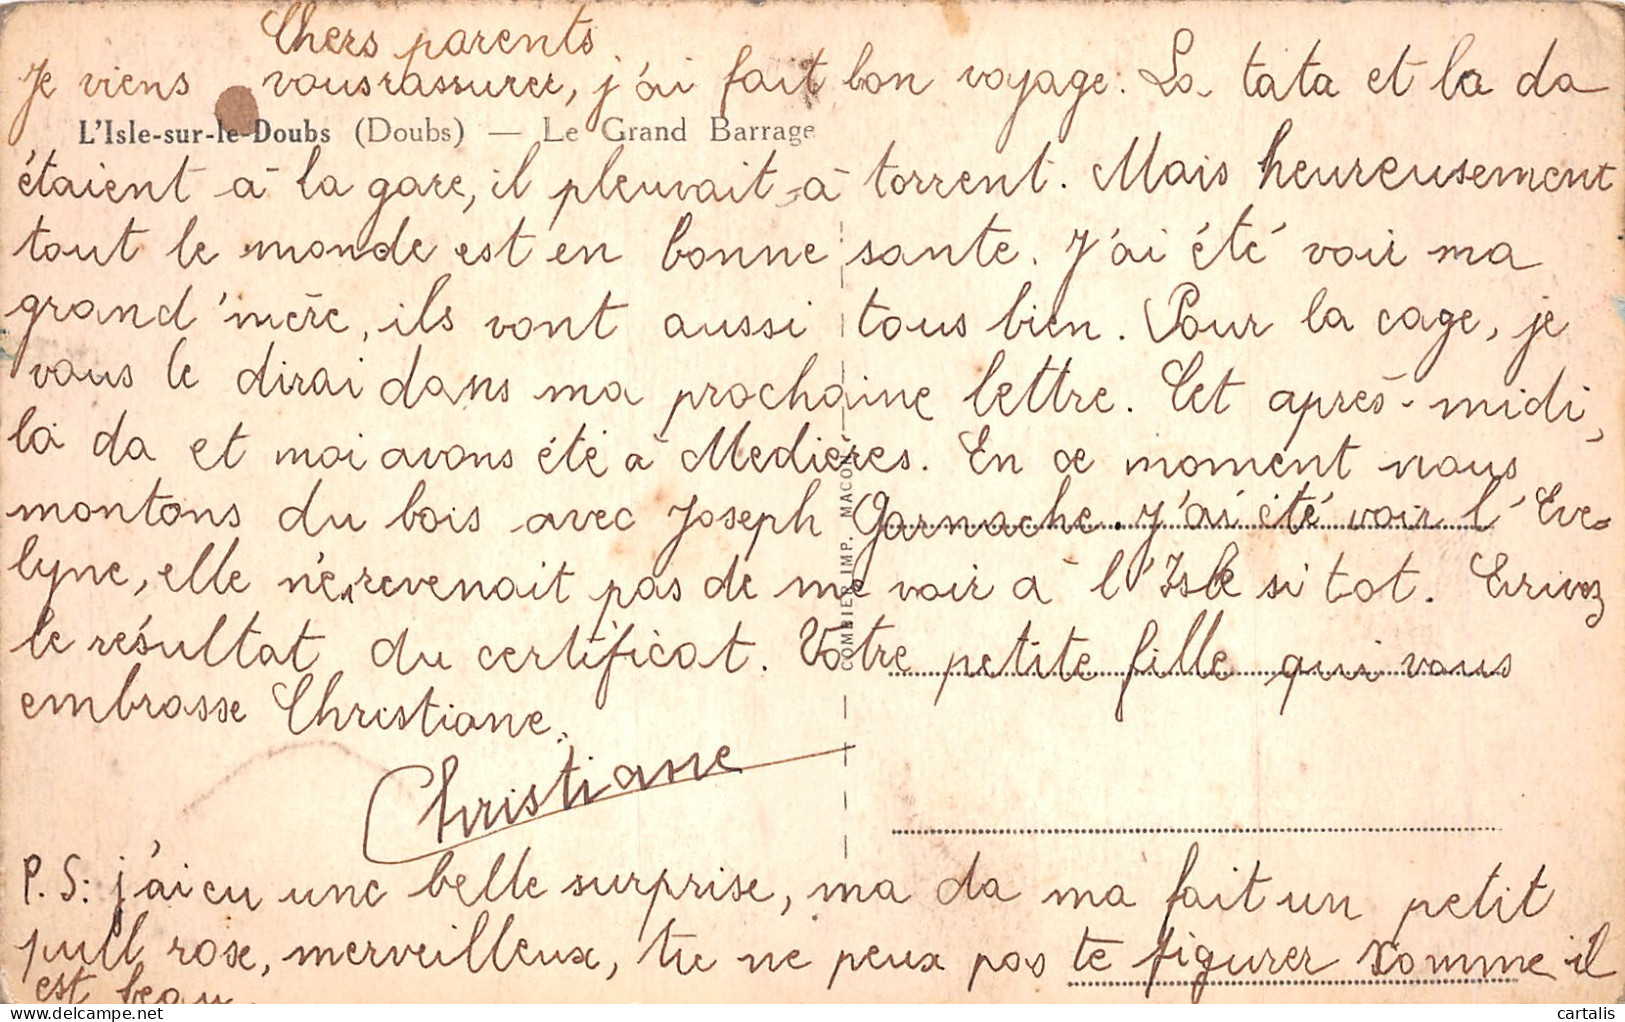 Chers parents
Je viens vous rassurer, j'ai fait bon voyage. La tata et la da
L'Isle-sur-le-Doubs (Doubs) — Le Grand Barrage
étaient à la gare, il pleuvait à torrent. Mais heureusement
tout le monde est en bonne sante. J'ai été voir ma
grand'mère, ils vont aussi tous bien. Pour la cage, je
vous le dirai dans ma prochaine lettre. Cet après-midi,
la da et moi avons été à Medières. En ce moment nous
montons du bois avec Joseph Garnache. j'ai été voir l'Eve-
lyne, elle n'e revenait pas de me voir à l'Isle si tot. Ecrivez
le résultat du certificat. Votre petite fille qui vous
embrasse Christiane.
Christiane
P.S: j'ai eu une belle surprise, ma da ma fait un petit
pull rose, merveilleux, tu ne peux pas te figurer comme il
est beau.
COMBIER IMP. MACON
cartalis